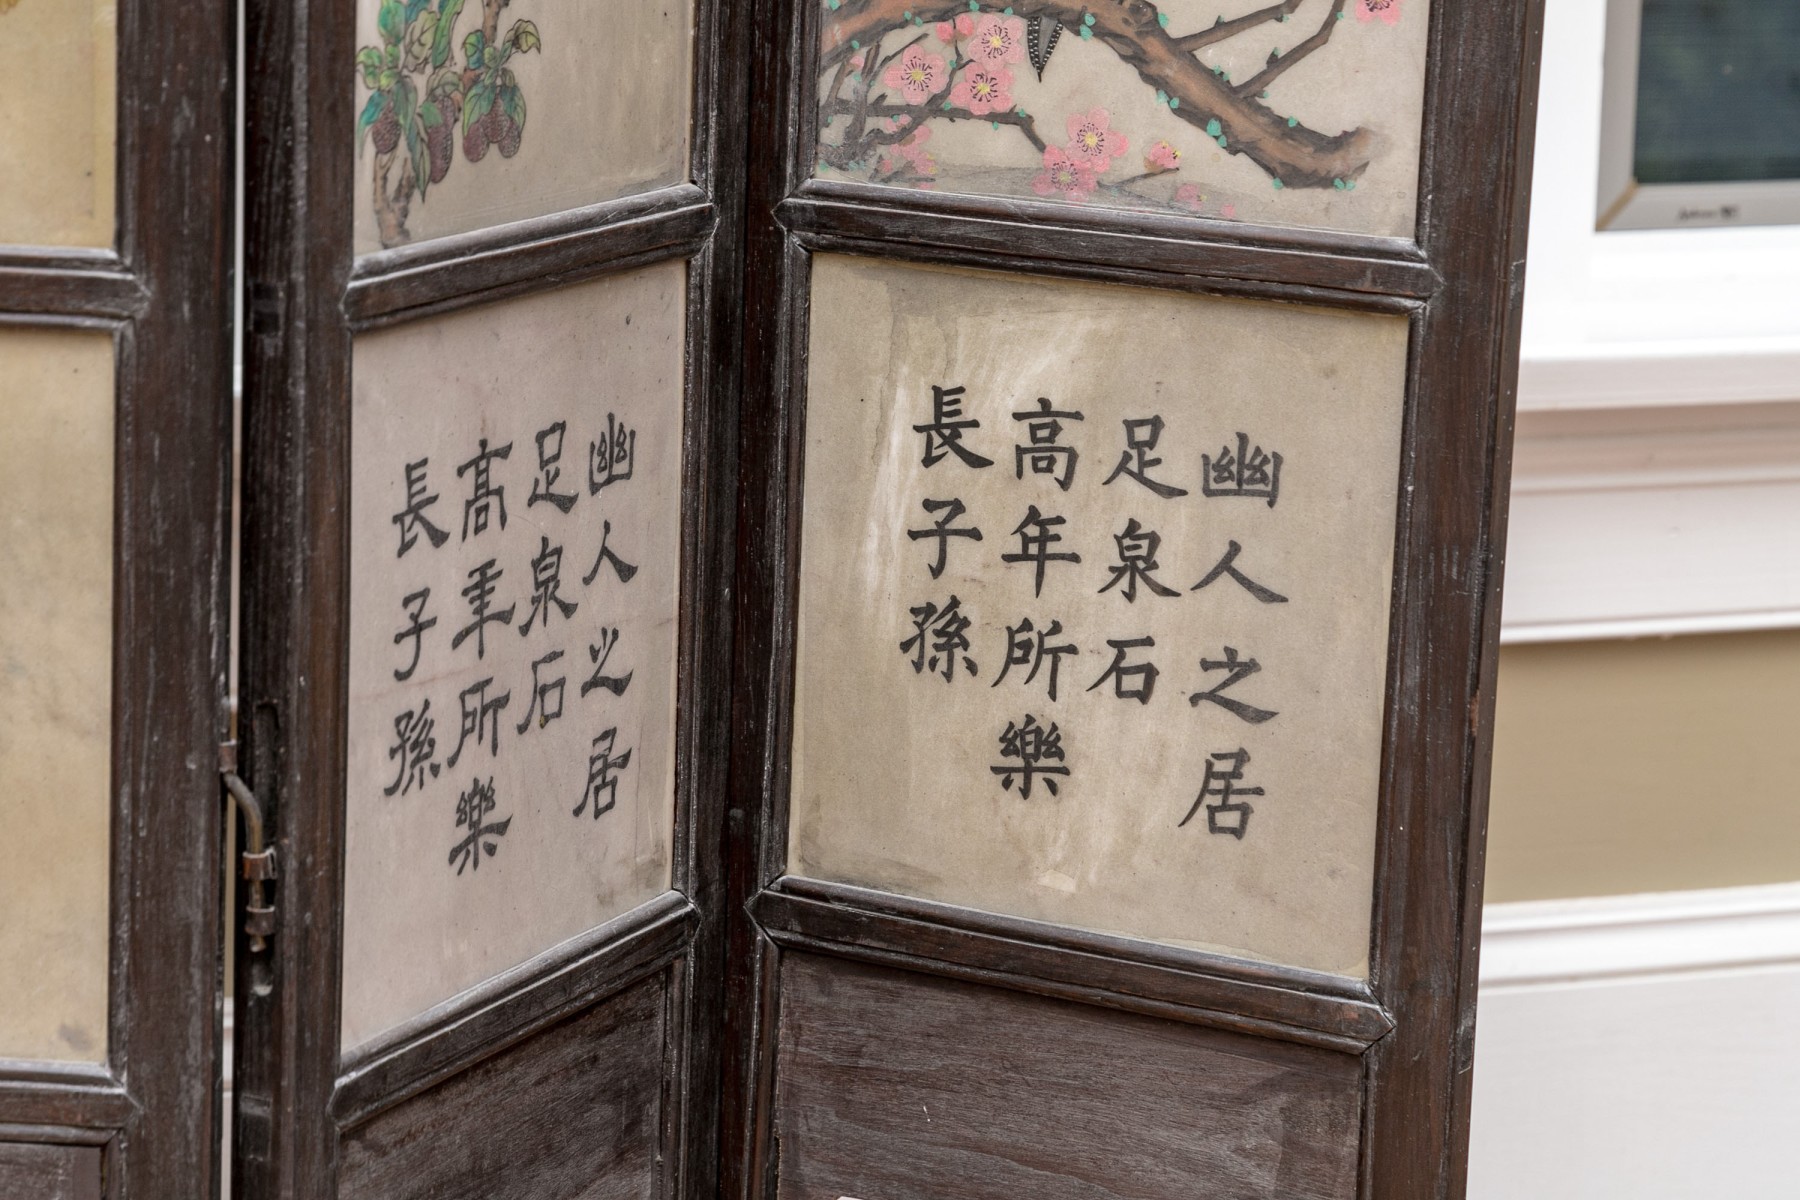 幽人之居
足泉石
高年所樂
長子孫
幽人之居
足泉石
髙年所樂
長子孫